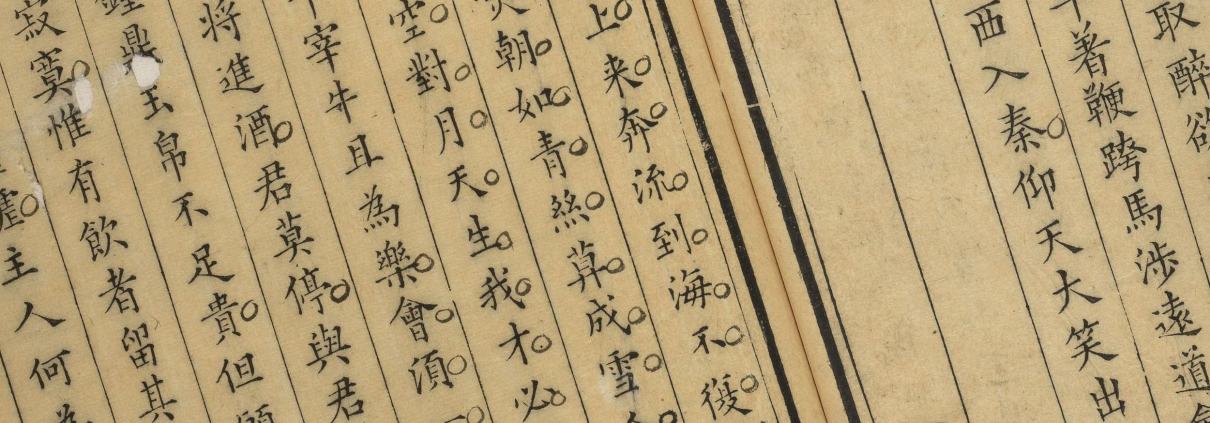 取醉欲
著鞭跨馬涉遠道
西入秦仰天大笑出
上来奔流到海不復
朝如青絲草成雪
空對月天生我才必
宰牛且為樂會須一
將進酒君莫停與君
鼎玉帛不足貴但願
寂寞惟有飲者留其
謔主人何